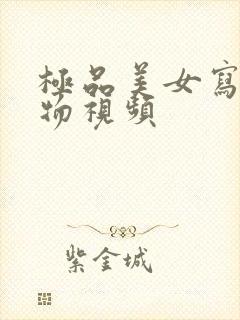 極品美女寫
物視頻
紫金城